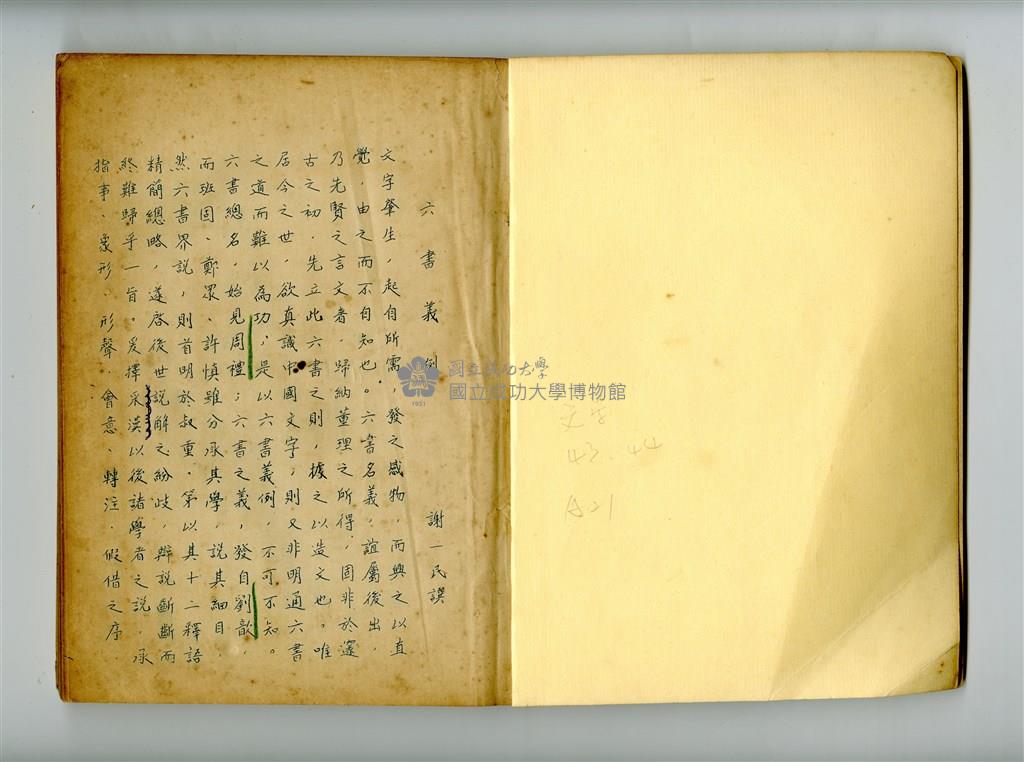 六書義例 謝一民譔
文字肇生，起自所需，發之感物，而興之以直
覺，由之而不自知也。六書名義，誼屬後出，
乃先賢之言文者，歸納董理之所得，固非於邃
古之初，先立此六書之則，據之以造文也，唯
居今之世，欲真識中國文字，則又非明通六書
之道而難以為功，是以六書義例，不可不知。
六書總名，始見周禮；六書之義，發自劉歆，
而班固、鄭眾、許慎雖分承其學，說其細目，
然六書界說，則首明於叔重，第以其十二釋語
精簡總略，遂啓後世說解之紛歧，辯說斷斷而
終難歸乎一旨。爰擇采漢以後諸學者之說，承
指事、象形、形聲、會意、轉注、假借之序，
國立成功大學
國立成功大學博物館
1931
文字
43.44
A21